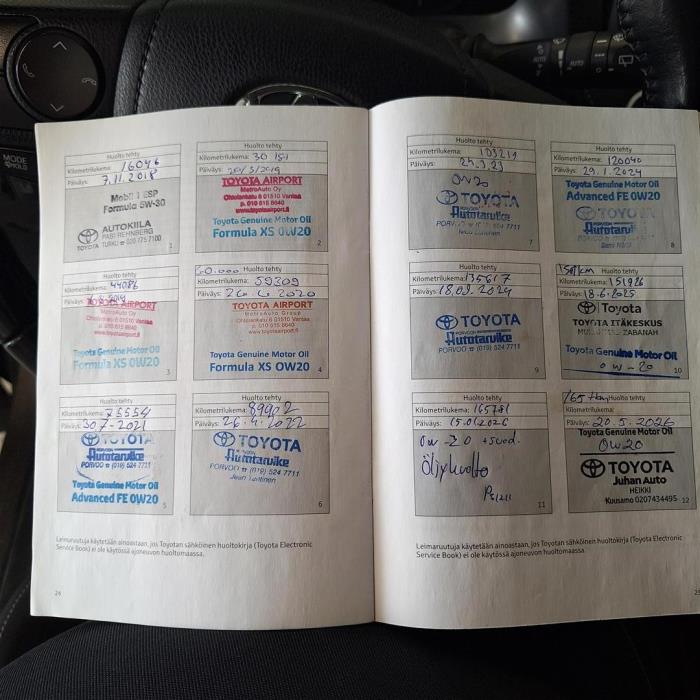 MODE
HOLD
AUTO
AUTO
Huolto tehty
Kilometrilukema: 16046
Päiväys: 7.11.2018
Mobil 1 ESP
Formula 5W-30
AUTOKILA
PASI REHNBERG
TOYOTA TURKU ☎ 020 775 7100
1
Huolto tehty
Kilometrilukema: 30 151
Päiväys: 20/5/2019
TOYOTA AIRPORT
MetroAuto Oy
Ohtolankatu 6 01510 Vantaa
p. 010 615 8640
www.toyotaairport.fi
Toyota Genuine Motor Oil
Formula XS 0W20
2
Huolto tehty
Kilometrilukema: 44086
Päiväys:
TOYOTA AIRPORT
MetroAuto Oy
Ohtolankatu 6 01510 Vantaa
p. 010 615 8640
www.toyotaairport.fi
Toyota Genuine Motor Oil
Formula XS 0W20
3
60.000 Huolto tehty
Kilometrilukema: 59309
Päiväys: 26.6.2020
TOYOTA AIRPORT
MetroAuto Group
Ohtolankatu 6 01510 Vantaa
p. 010 615 8640
www.toyotaairport.fi
Toyota Genuine Motor Oil
Formula XS OW20
4
Huolto tehty
Kilometrilukema: 75554
Päiväys: 30.7.2021
TOYOTA
Autotarvike
PORVOO ☎ (019) 524 7711
Toyota Genuine Motor Oil
Advanced FE 0W20
5
Huolto tehty
Kilometrilukema: 89902
Päiväys: 26.4.2022
TOYOTA
Autotarvike
PORVOO ☎ (019) 524 7711
6
Leimaruutuja käytetään ainoastaan, jos Toyotan sähköinen huoltokirja (Toyota Electronic
Service Book) ei ole käytössä ajoneuvon huoltomaassa.
24
Huolto tehty
Kilometrilukema: 103211
Päiväys: 24.3.23
0W20
TOYOTA
Autotarvike
PORVOO ☎ (019) 524 7711
7
Huolto tehty
Kilometrilukema: 120040
Päiväys: 29.1.2024
Toyota Genuine Motor Oil
Advanced FE 0W20
TOYOTA
Autotarvike
PORVOO ☎ (019) 524 7711
8
Huolto tehty
Kilometrilukema: 135617
Päiväys: 18.09.2024
TOYOTA
Autotarvike
PORVOO ☎ (019) 524 7711
9
Huolto tehty
Kilometrilukema: 151926
Päiväys: 18.6.2025
Toyota
TOYOTA ITÄKESKUS
ZABANAH
Toyota Genuine Motor Oil
0W-20
10
Huolto tehty
Kilometrilukema: 165781
Päiväys: 15.01.2026
0W-20 + suod.
Öljyhuolto
11
165 tkm Huolto tehty
Kilometrilukema:
Päiväys: 20.5.2026
Toyota Genuine Motor Oil
0W20
TOYOTA
Juhan Auto
HEIKKI
Kuusamo 0207434495
12
Leimaruutuja käytetään ainoastaan, jos Toyotan sähköinen huoltokirja (Toyota Electronic
Service Book) ei ole käytössä ajoneuvon huoltomaassa.